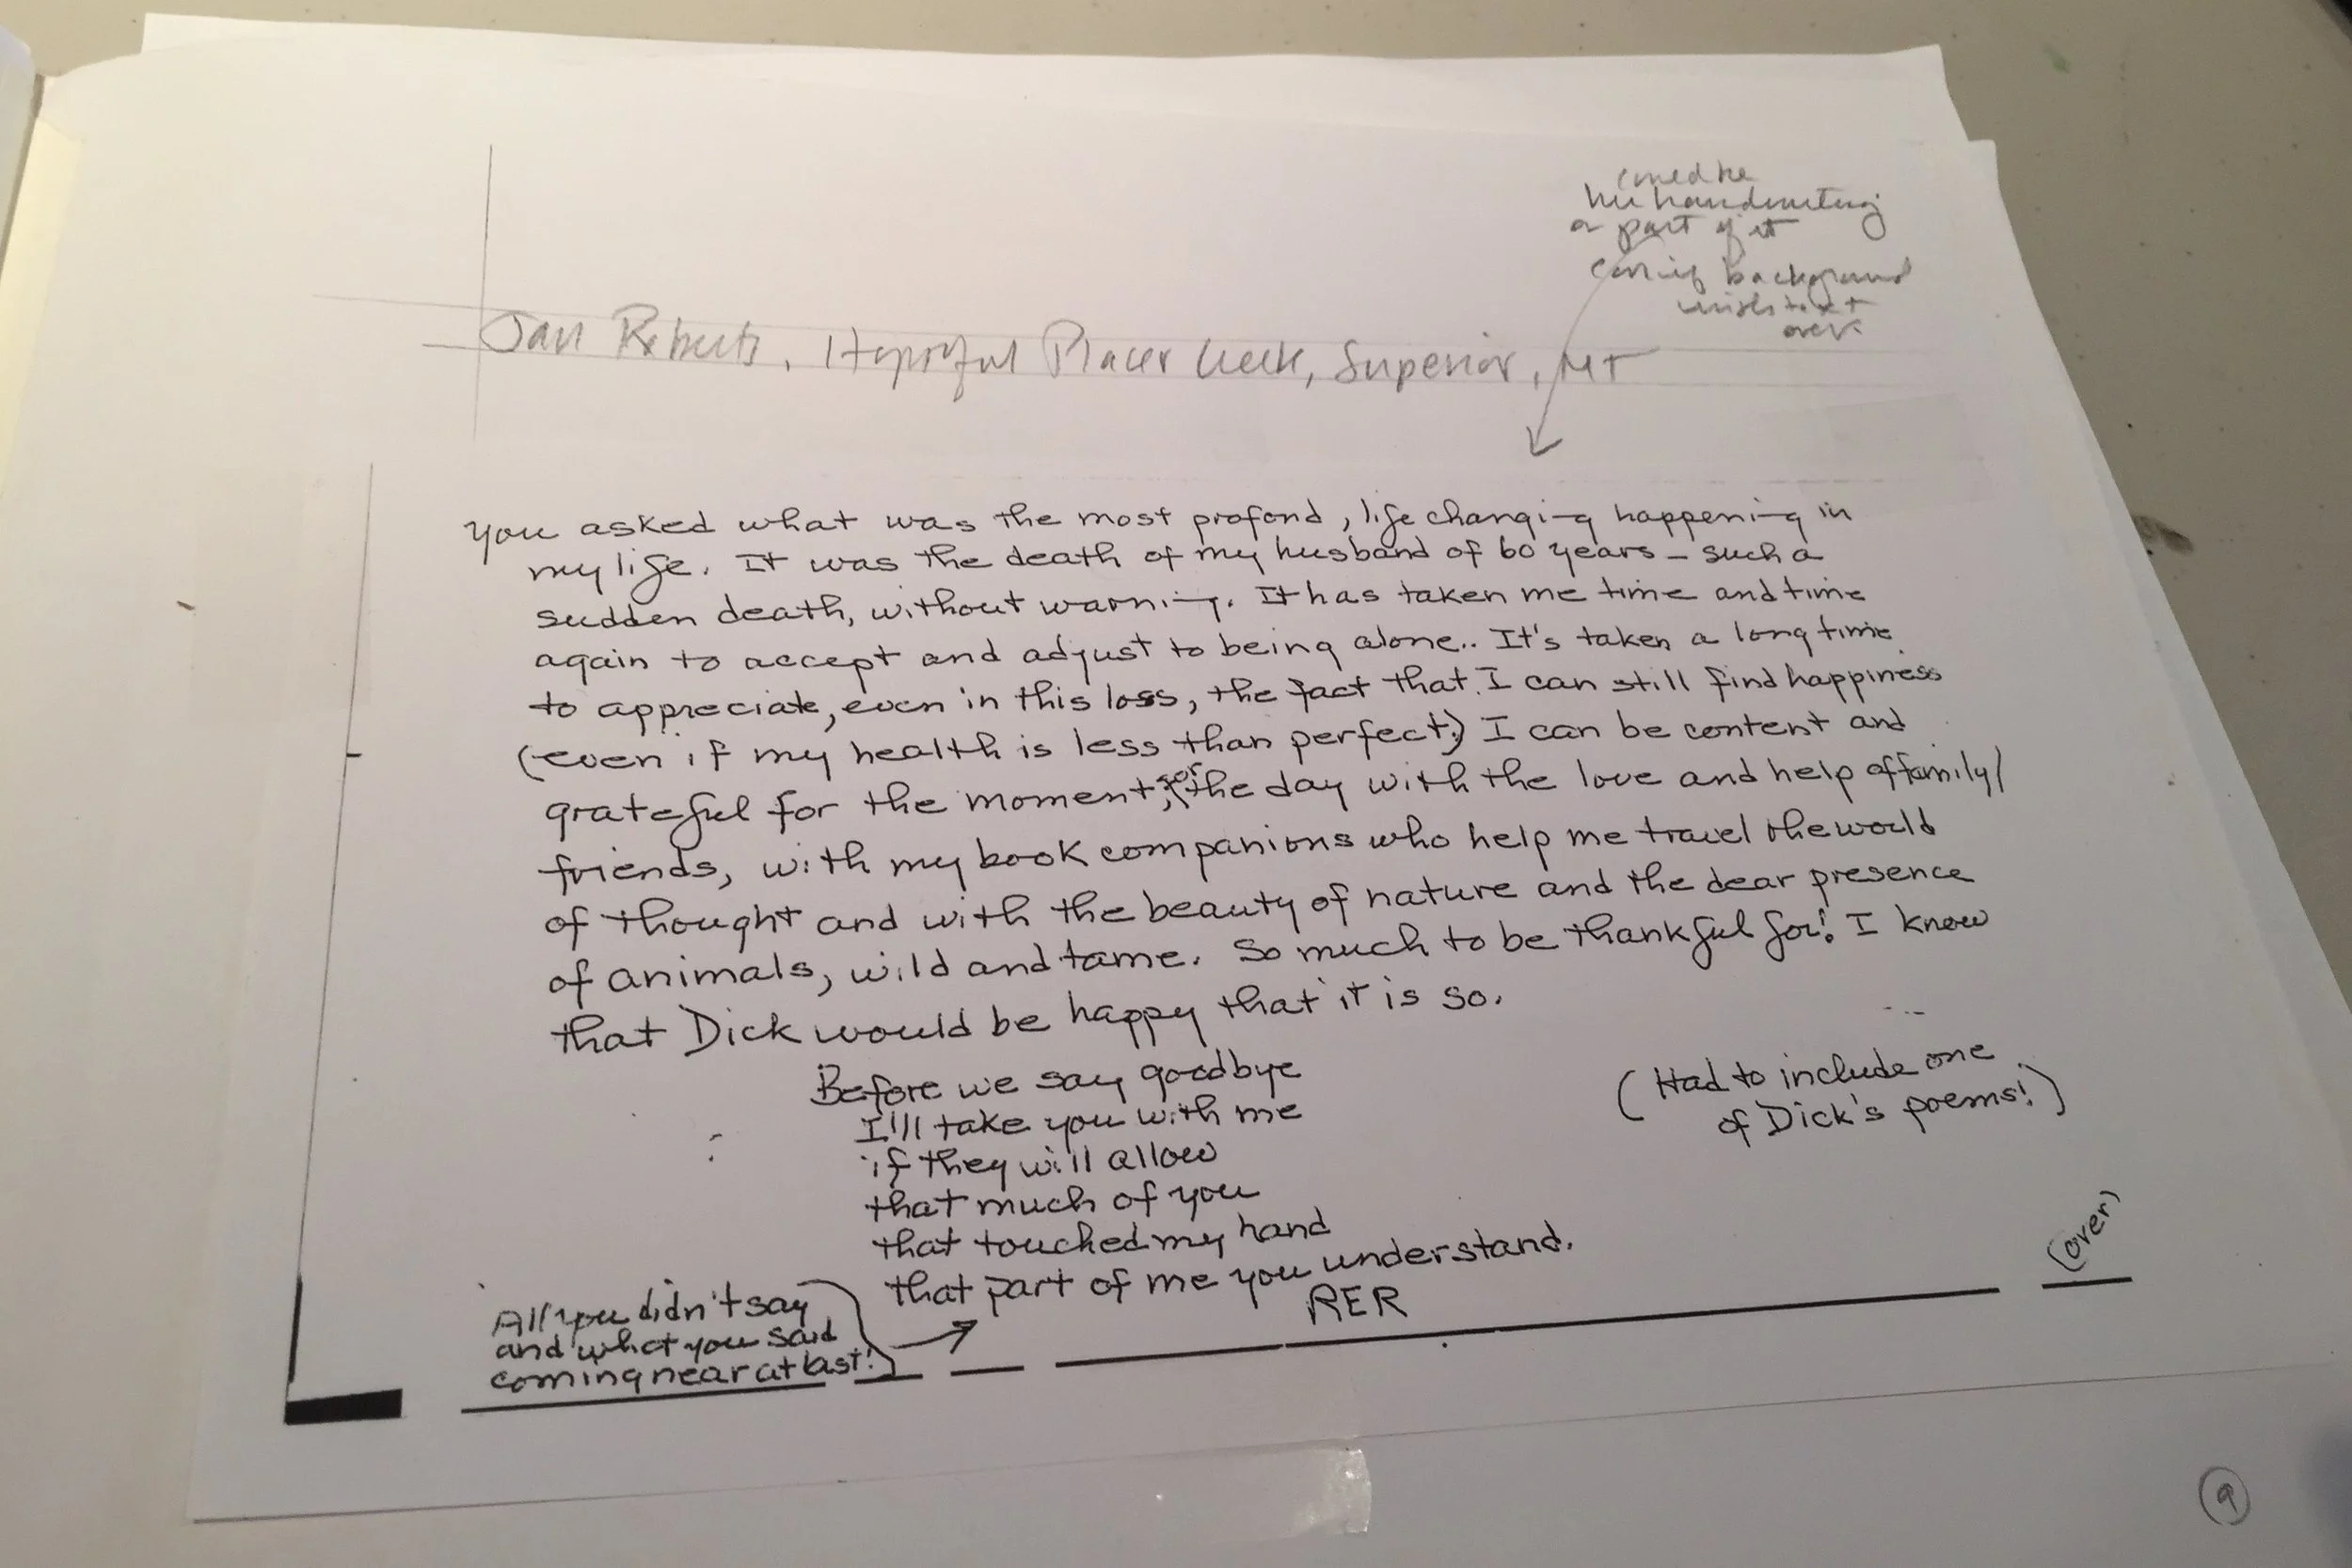 could be
her handwriting
or part of it
background
with text
over
Jan Roberts, Placer Creek, Superior, MT
You asked what was the most profond, life changing happening in
my life. It was the death of my husband of 60 years - such a
sudden death, without warning. It has taken me time and time
again to accept and adjust to being alone.. It's taken a long time
to appreciate, even in this loss, the fact that I can still find happiness
(even if my health is less than perfect.) I can be content and
grateful for the moment, for the day with the love and help of family/
friends, with my book companions who help me travel the world
of thought and with the beauty of nature and the dear presence
of animals, wild and tame. So much to be thankful for! I know
that Dick would be happy that it is so.
Before we say goodbye
I'll take you with me
if they will allow
that much of you
that touched my hand
that part of me you understand.
RER
(Had to include one
of Dick's poems!)
(over)
All you didn't say
and what you said
coming near at last!
9